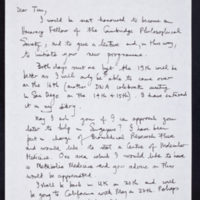 Dear Tim,
I would be most honoured to become an
Honorary Fellow of the Cambridge Philosophical
Society, and to give a lecture and, in this way,
to initiate your new programme.
Both days suit me but the 19th will be
better as I will only be able to come over
on the 16th (another DNA celebrate meeting
in San Diego on the 14th & 15th). I have entered
it in my diary.
May I ask you if I can approach you
later to help in Singapore? I have been
put in charge of Biomedical Research there
and would like to start a Centre of Molecular
Medicine. One area which I would like to have
is Metabolic Medicine and your advice on this
would be appreciated.
I shall be back in UK on 20th and will
be going to California until May 20th. Perhaps